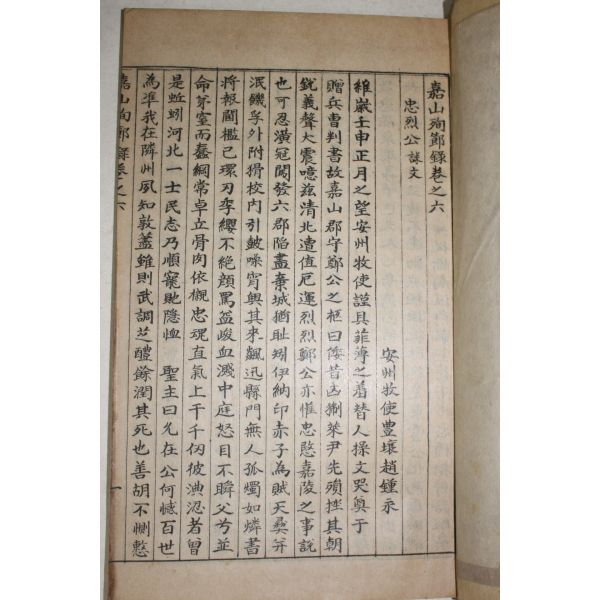 嘉山殉節錄卷之六
忠烈公誄文
安州牧使豊壤趙鍾永
維歲壬申正月之望安州牧使謹具菲薄之着替人操文哭奠于
贈兵曹判書故嘉山郡守鄭公之柩曰倭昔凶猘萊尹先殞挫其朝
銳義聲大震噫玆淸北遭值厄運烈烈鄭公亦惟忠愍嘉陵之事說
也可忍潢寇闖發六郡陷盡棄城猶耻矧伊納印赤子為賊天彝并
泯饑孚外附猾校內引鼓噪宵輿其來飆迅縣門無人孤燭如燐書
將報闔檻已環刃李纓不絕顔罵益峻血濺中庭怒目不瞬父兮並
命芽室而蠢綱常卓立骨肉依櫬忠魂直氣上干千仞彼淟涊者曾
是蚯蚓河北一士民志乃順寵貤隱恤 聖主曰允在公何憾百世
為準我在隣州夙知敦藎雖則武調芝醴餘潤其死也善胡不惻慗
嘉山殉節錄卷之六
一